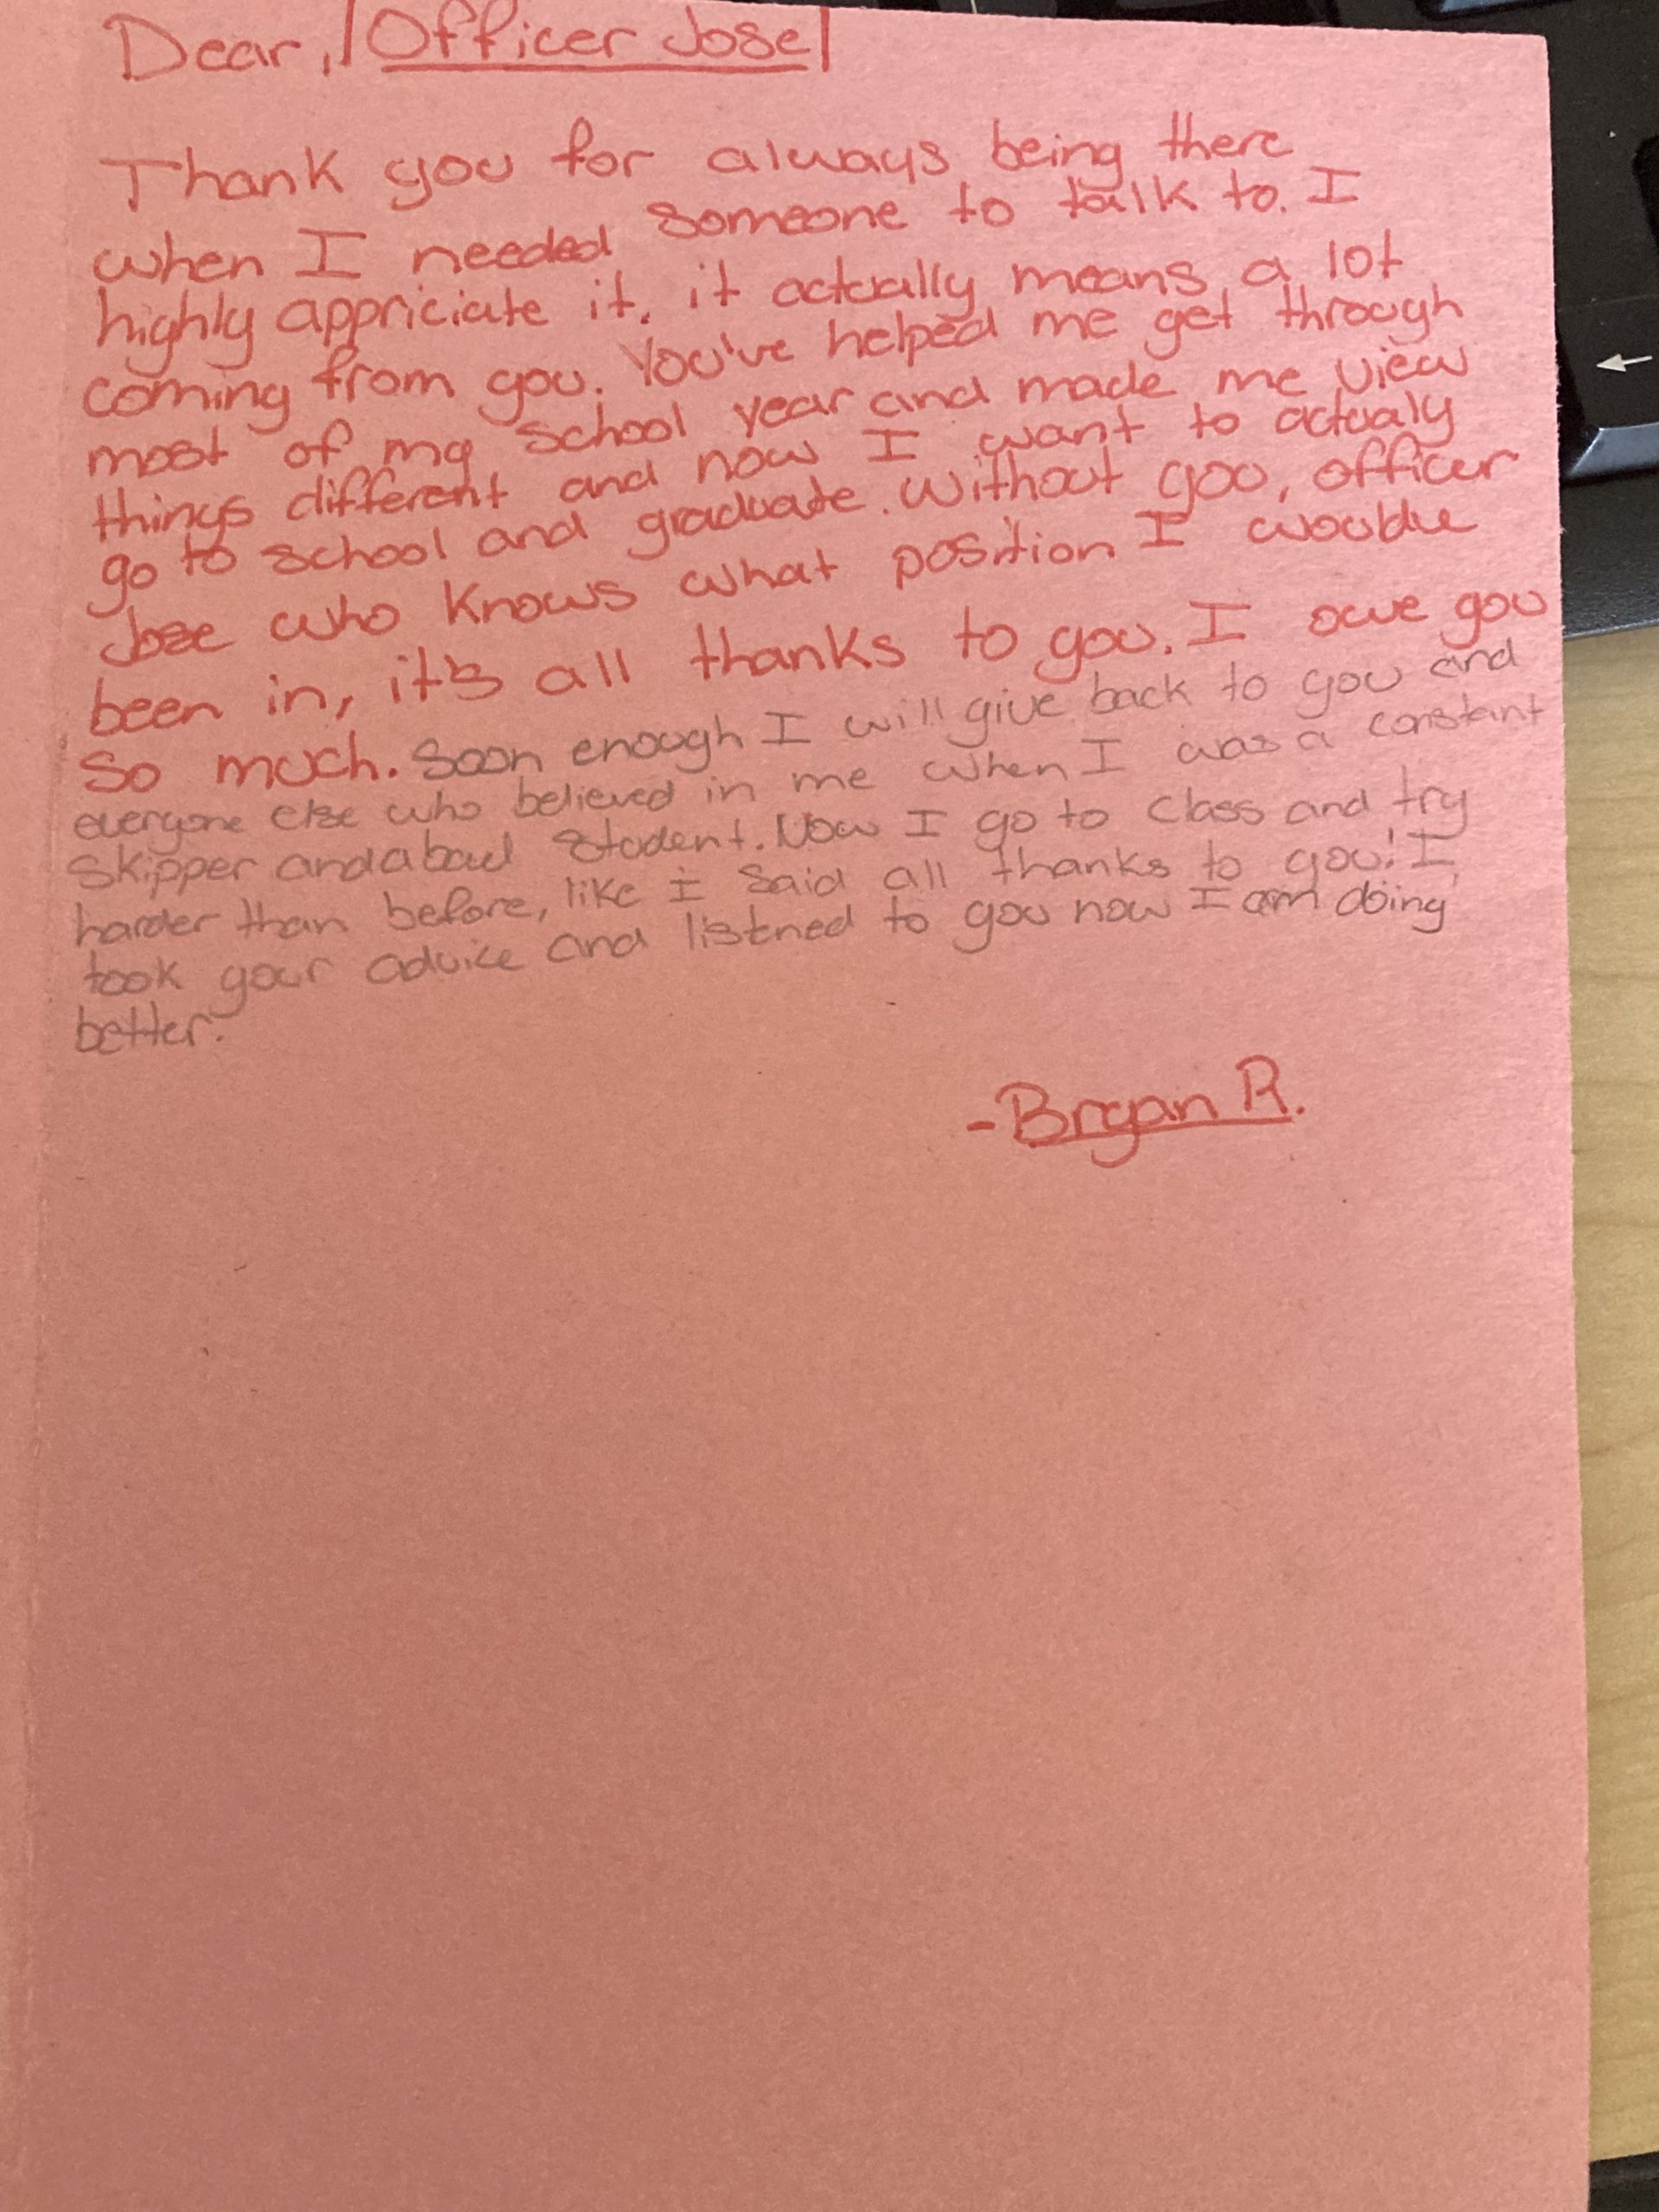 Dear, Officer Jose
Thank you for always being there
when I needed someone to talk to. I
highly appriciate it, it actually means a lot
coming from you. You've helped me get through
most of my school year and made me view
things different and now I want to actualy
go to school and graduate. Without you, officer
Jose who knows what position I wouldve
been in, it's all thanks to you. I owe you
so much. Soon enough I will give back to you and
everyone else who believed in me when I was a constant
skipper and a bad student. Now I go to class and try
harder than before, like I said all thanks to you! I
took your advice and listened to you now I am doing
better.
-Bryan R.